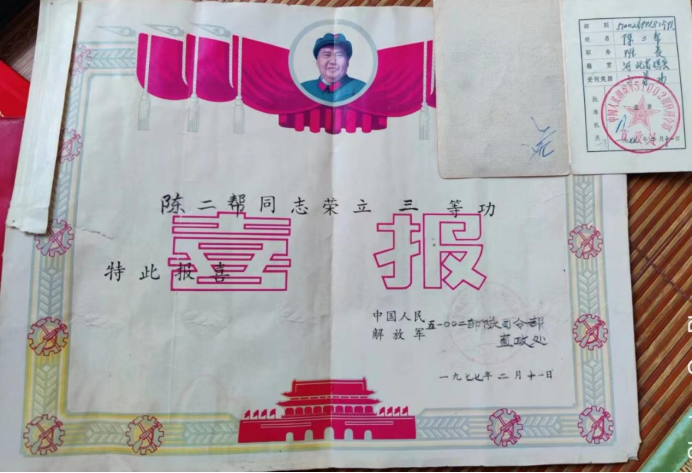 陈二帮同志荣立三等功
喜报
特此报喜
中国人民
解放军
五一〇〇二部队司令部
直政处
一九七七年二月十一日
姓名
职务 班长
籍贯